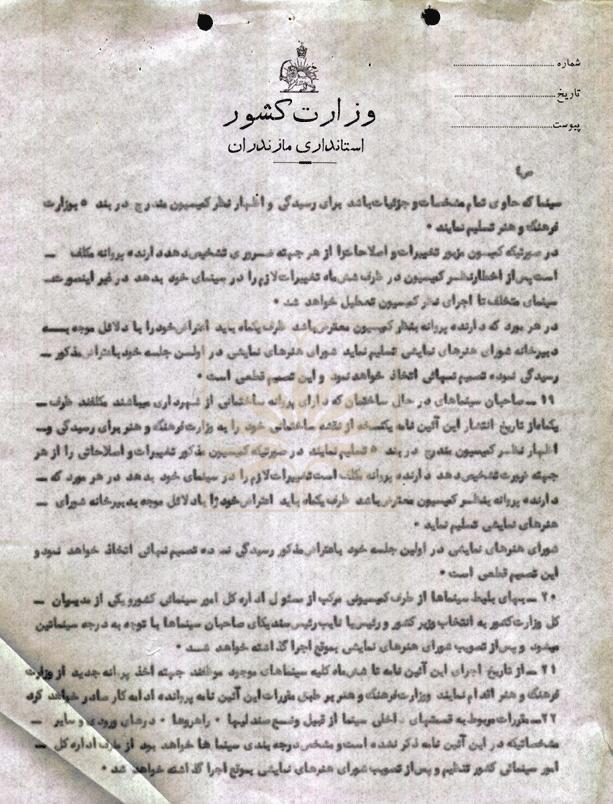 شماره
تاریخ
پیوست
وزارت کشور
استانداری مازندران
سینما که حاوی تمام مشخصات و جزئیات باشد برای رسیدگی و اظهار نظر کمیسیون مندرج در بند ۵ بوزارت
فرهنگ و هنر تسلیم نمایند .
در صورتیکه کمیسیون مزبور تغییرات و اصلاحات را از هر جهته ضروری تشخیص دهد دارنده پروانه مکلف ــ
است پس از اخطار نظر کمیسیون در ظرف شش ماه تغییرات لازم را در سینمای خود بدهد در غیر اینصورت
سینمای متخلف تا اجرای نظر کمیسیون تعطیل خواهد شد .
در هر مورد که دارنده پروانه بنظر کمیسیون معترض باشد ظرف یکماه باید اعتراض خود را با دلائل موجه بـــه
دبیرخانه شورای هنرهای نمایشی تسلیم نماید شورای هنرهای نمایشی در اولین جلسه خود باعتراض مذکور ــ
رسیدگی نموده تصمیم نهائی اتخاذ خواهد نمود و این تصمیم قطعی است .
۱۹ ــ صاحبان سینماهای در حال ساختمان که دارای پروانه ساختمانی از شهرداری میباشند مکلفند ظرف ــ
یکماه از تاریخ انتشار این آئین نامه یکنسخه از نقشه ساختمانی خود را به وزارت فرهنگ و هنر برای رسیدگی و ــ
اظهار نظر کمیسیون مندرج در بند ۵ تسلیم نمایند در صورتیکه کمیسیون مذکور تغییرات و اصلاحاتی را از هر
جهته ضرورت تشخیص دهد دارنده پروانه مکلف است تغییرات لازم را در سینمای خود بدهد در هر مورد که ــ
دارنده پروانه بنظر کمیسیون معترض باشد ظرف یکماه باید اعتراض خود را با دلائل موجه بدبیرخانه شورای ــ
هنرهای نمایشی تسلیم نماید .
شورای هنرهای نمایشی در اولین جلسه خود باعتراض مذکور رسیدگی نموده تصمیم نهائی اتخاذ خواهد نمود و
این تصمیم قطعی است .
۲۰ ــ بهای بلیط سینماها از طرف کمیسیونی مرکب از مسئول اداره کل امور سینمائی کشور و یکی از مدیران ــ
کل وزارت کشور به انتخاب وزیر کشور و رئیس یا نایب رئیس سندیکای صاحبان سینماها با توجه به درجه سینما تعیین
میشود و پس از تصویب شورای هنرهای نمایشی بموقع اجرا گذاشته خواهد شد .
۲۱ ــ از تاریخ اجرای این آئین نامه تا شش ماه کلیه سینماهای موجود موظفند جهته اخذ پروانه جدید از وزارت
فرهنگ و هنر اقدام نمایند وزارت فرهنگ و هنر بر طبق مقررات این آئین نامه پروانه ادامه کار صادر خواهد کرد
۲۲ ــ مقررات مربوط به قسمتهای داخلی سینما از قبیل وضع صندلیها ، راهروها ، درهای ورودی و سایر ــ
مشخصاتیکه در این آئین نامه ذکر نشده است و مشخص درجه بندی سینما ها خواهد بود از طرف اداره کل ــ
امور سینمائی کشور تنظیم و پس از تصویب شورای هنرهای نمایشی بموقع اجرا گذاشته خواهد شد .